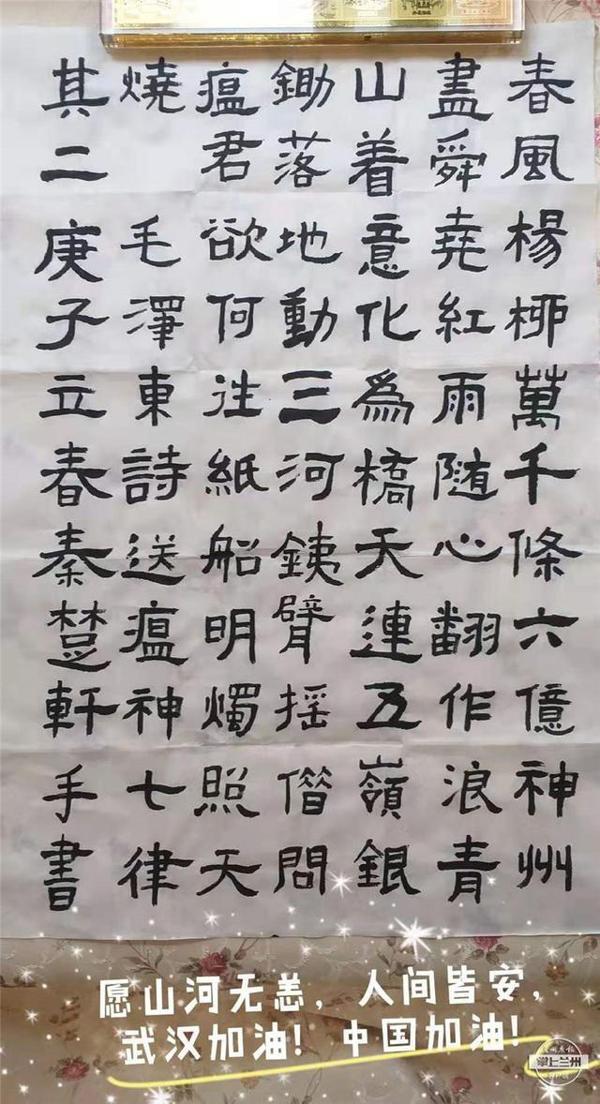 春風楊柳萬千條六億神州
盡舜堯紅雨随心翻作浪青
山着意化為橋天連五嶺銀
鋤落地動三河銕臂揺借問
瘟君欲何往紙船明燭照天
燒 毛澤東詩送瘟神七律
其二 庚子立春秦楚軒手書
愿山河无恙，人间皆安，
武汉加油！中国加油！
掌上兰州